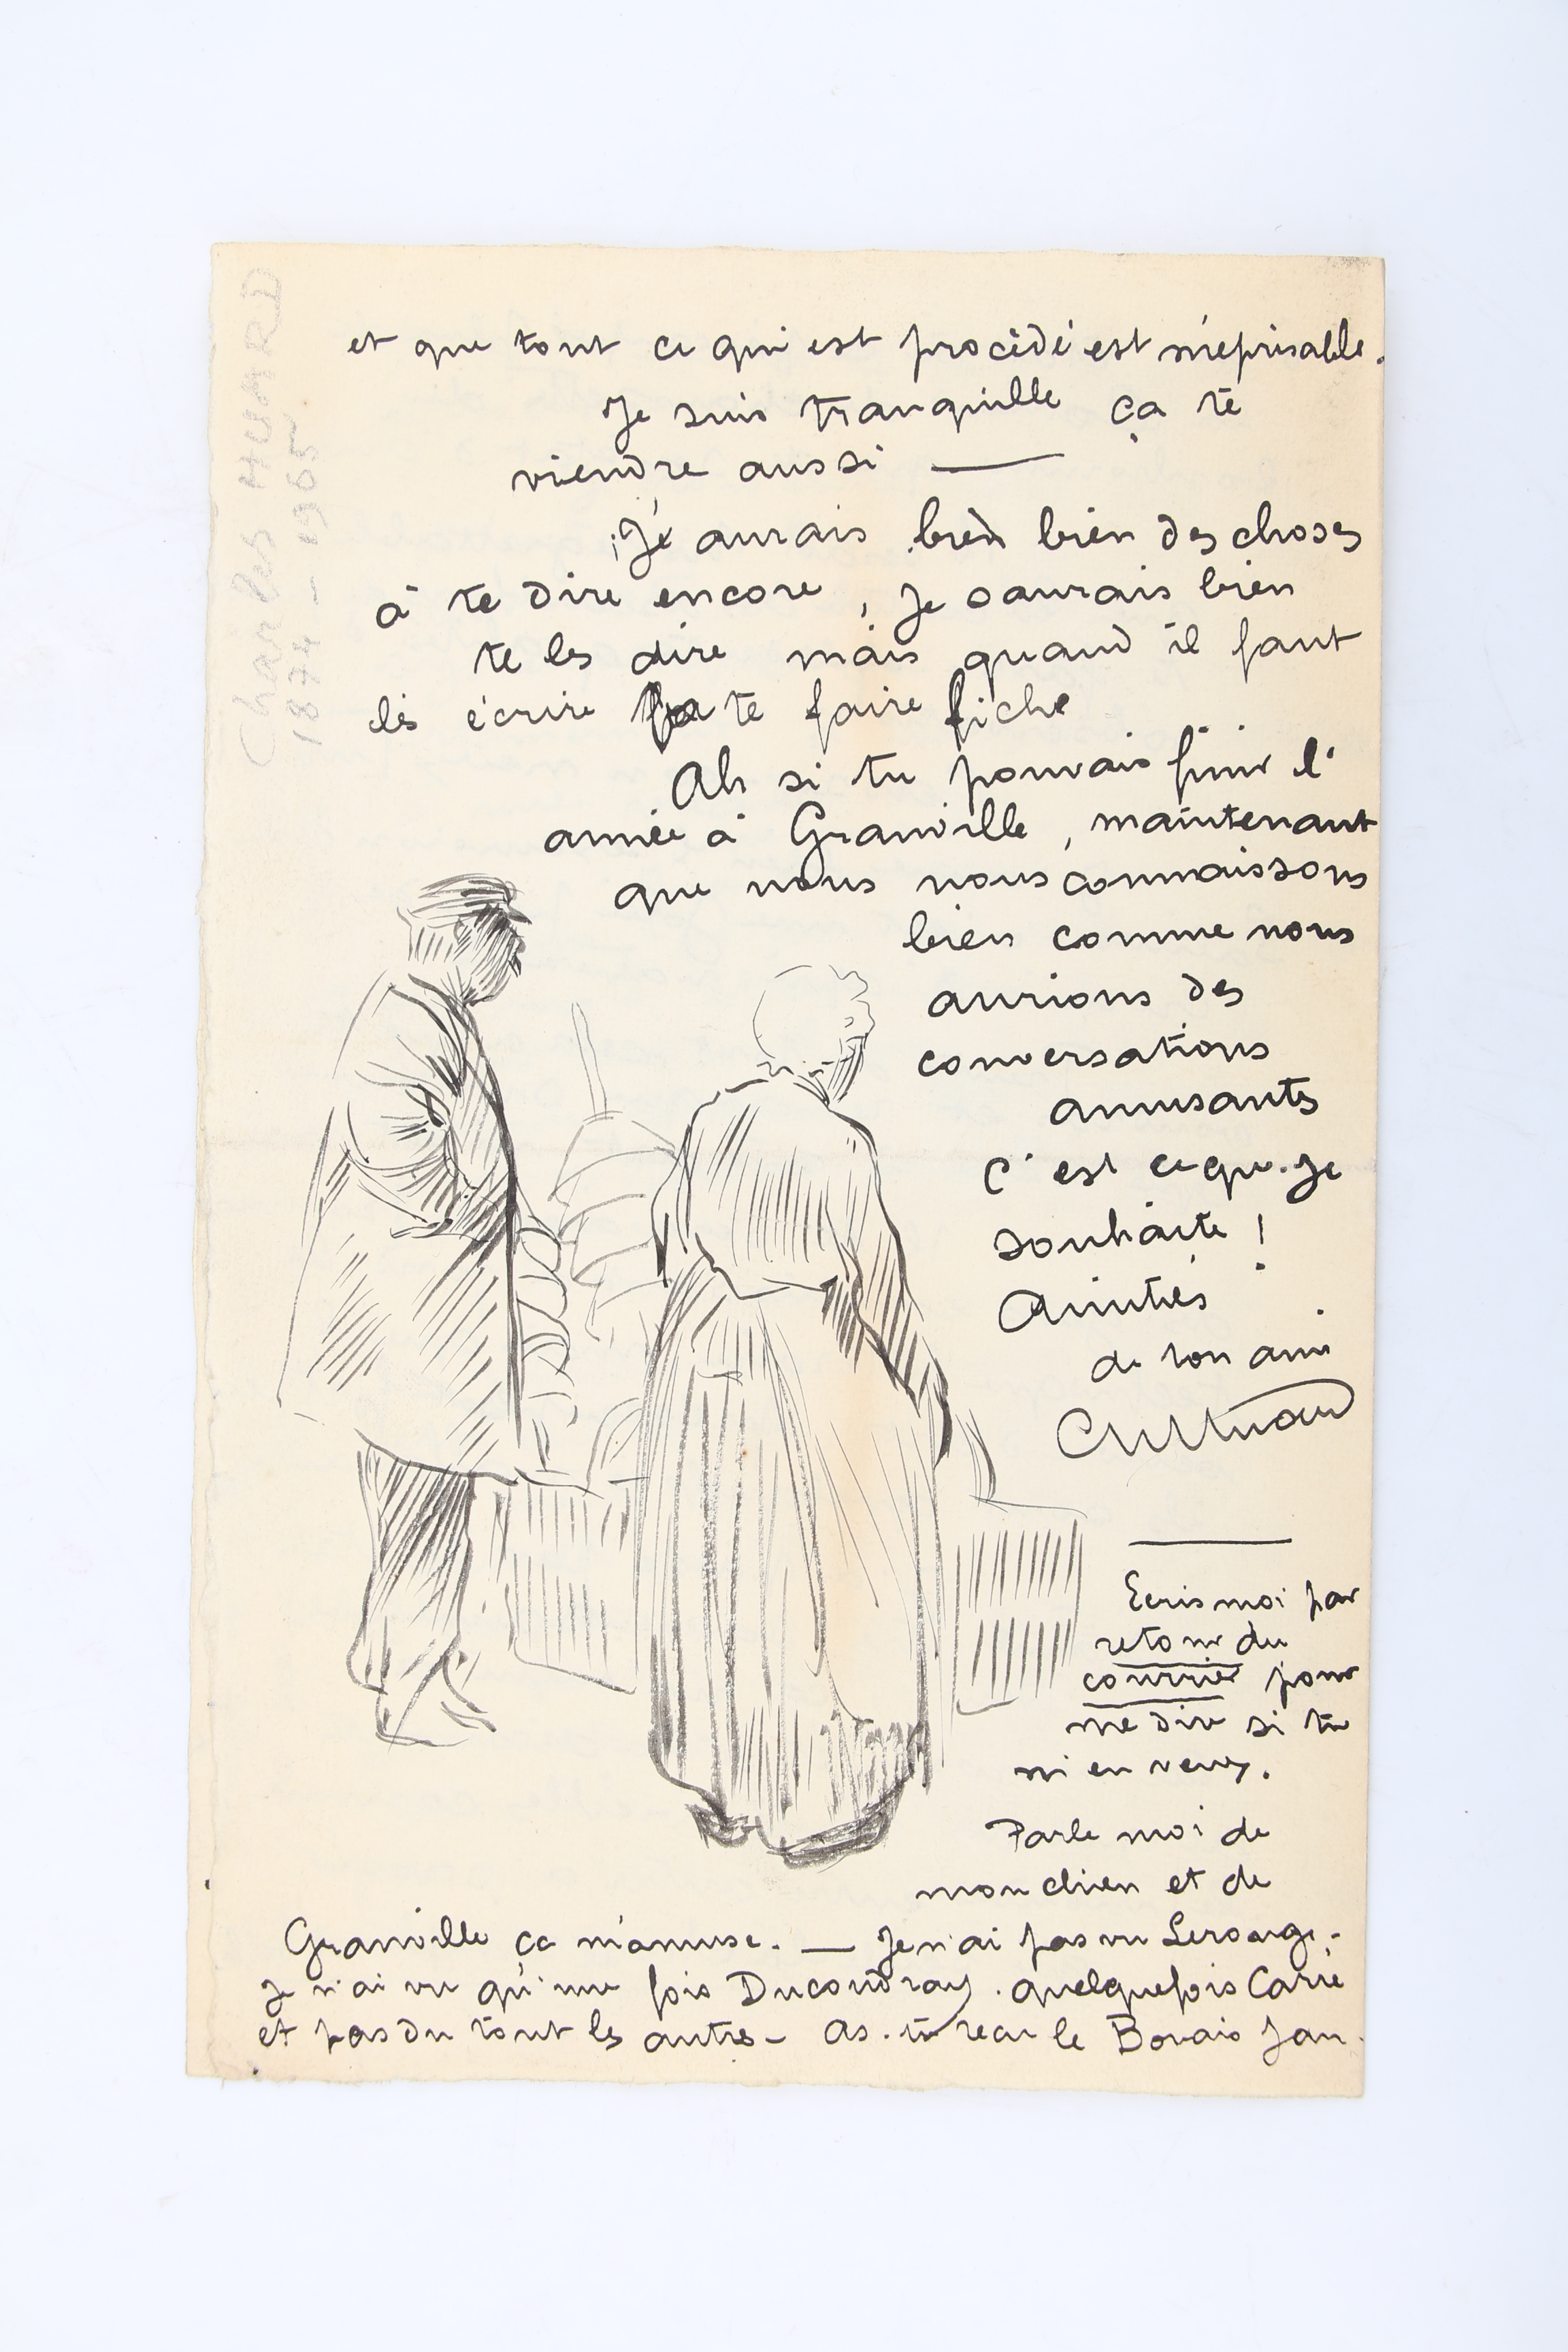 et que tout ce qui est procédé est méprisable.
Je suis tranquille ça te
viendra aussi —
J'aurais bien bien des choses
à te dire encore, je saurais bien
te les dire mais quand il faut
les écrire va te faire fiche
Ah si tu pouvais finir l'
année à Granville, maintenant
que nous nous connaissons
bien comme nous
aurions des
conversations
amusants
C'est ce que je
souhaite !
Amitiés
de ton ami
Ch Huard
Ecris moi par
retour du
courrier pour
me dire si tu
m'en veux.
Parle moi de
mon chien et de
Granville ça m'amuse. — Je n'ai pas vu Lerouge.
Je n'ai vu qu'une fois Ducoudray. quelquefois Carré
et pas du tout les autres - As-tu recu le Bovais
Charles HUARD
1874 - 1965